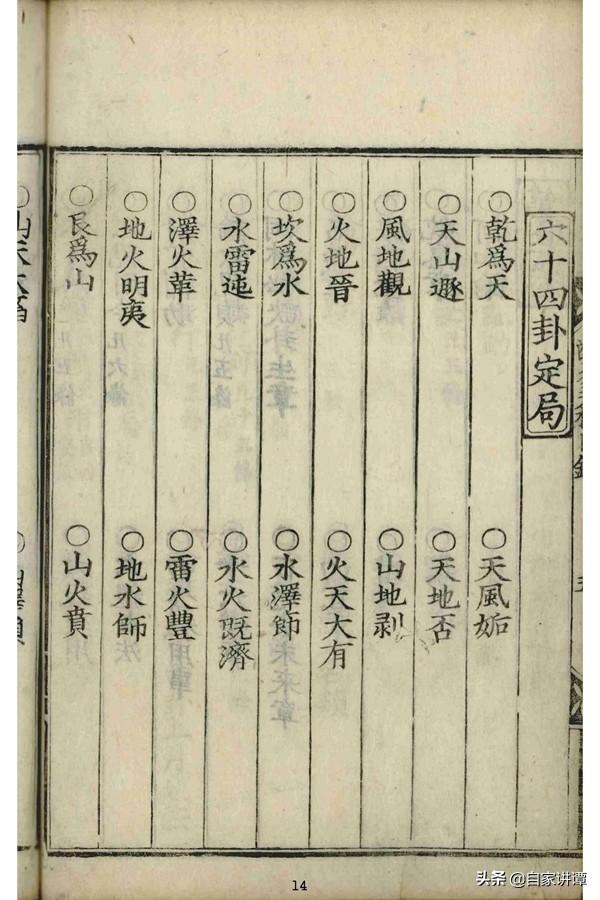 六十四卦定局
○乾爲天
○天風姤
○天山遯
○天地否
○風地觀
○山地剥
○火地晉
○火天大有
○坎爲水
○水澤節
○水雷屯
○水火既濟
○澤火革
○雷火豐
○地火明夷
○地水師
○艮爲山
○山火賁
14
头条 @自家讲谭